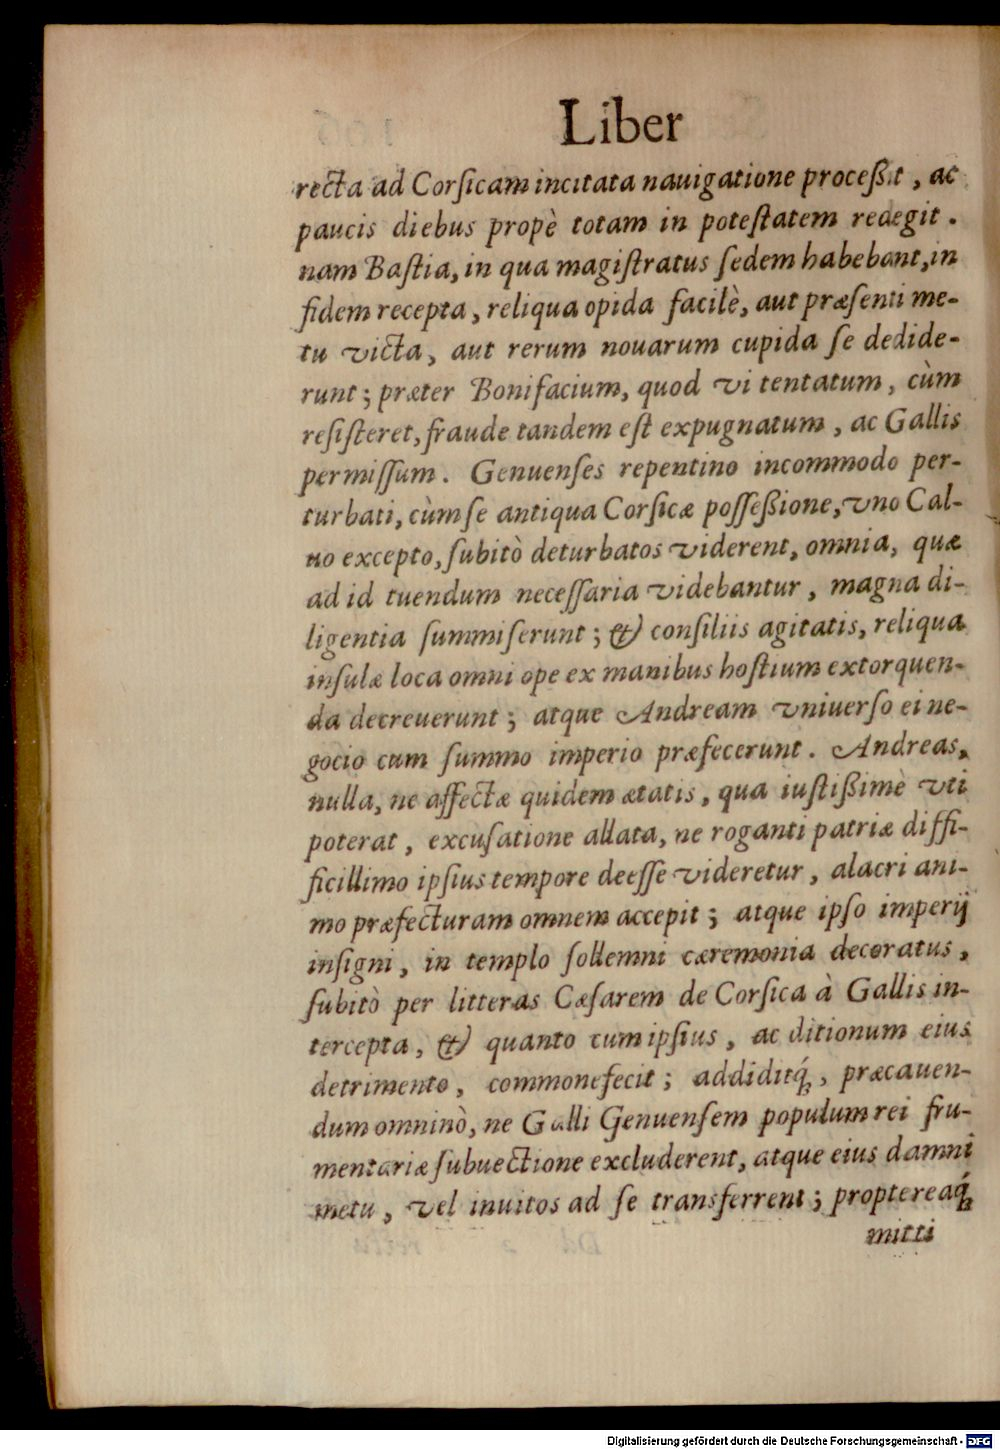 Liber
recta ad Corſicam incitata nauigatione proceßit, ac
paucis diebus propè totam in poteſtatem redegit.
nam Baſtia, in qua magiſtratus ſedem habebant, in
fidem recepta, reliqua opida facilè, aut præſenti me-
tu victa, aut rerum nouarum cupida ſe dedide-
runt; præter Bonifacium, quod vi tentatum, cùm
reſiſteret, fraude tandem eſt expugnatum, ac Gallis
permiſſum. Genuenſes repentino incommodo per-
turbati, cùm ſe antiqua Corſicæ poſſeßione, vno Cal-
uo excepto, ſubitò deturbatos viderent, omnia, quæ
ad id tuendum neceſſaria videbantur, magna di-
ligentia ſummiſerunt; & conſiliis agitatis, reliqua
inſulæ loca omni ope ex manibus hoſtium extorquen-
da decreuerunt; atque Andream vniuerſo ei ne-
gocio cum ſummo imperio præfecerunt. Andreas,
nulla, ne affectæ quidem ætatis, qua iuſtißimè vti
poterat, excuſatione allata, ne roganti patriæ diffi-
ficillimo ipſius tempore deeſſe videretur, alacri ani-
mo præfecturam omnem accepit; atque ipſo imperij
inſigni, in templo ſollemni cæremonia decoratus,
ſubitò per litteras Cæſarem de Corſica à Gallis in-
tercepta, & quanto cum ipſius, ac ditionum eius
detrimento, commonefecit; addiditq́, præcauen-
dum omninò, ne Galli Genuenſem populum rei fru-
mentariæ ſubuectione excluderent, atque eius damni
metu, vel inuitos ad ſe transferrent; proptereaq́
mitti
Digitalisierung gefördert durch die Deutsche Forschungsgemeinschaft - DFG